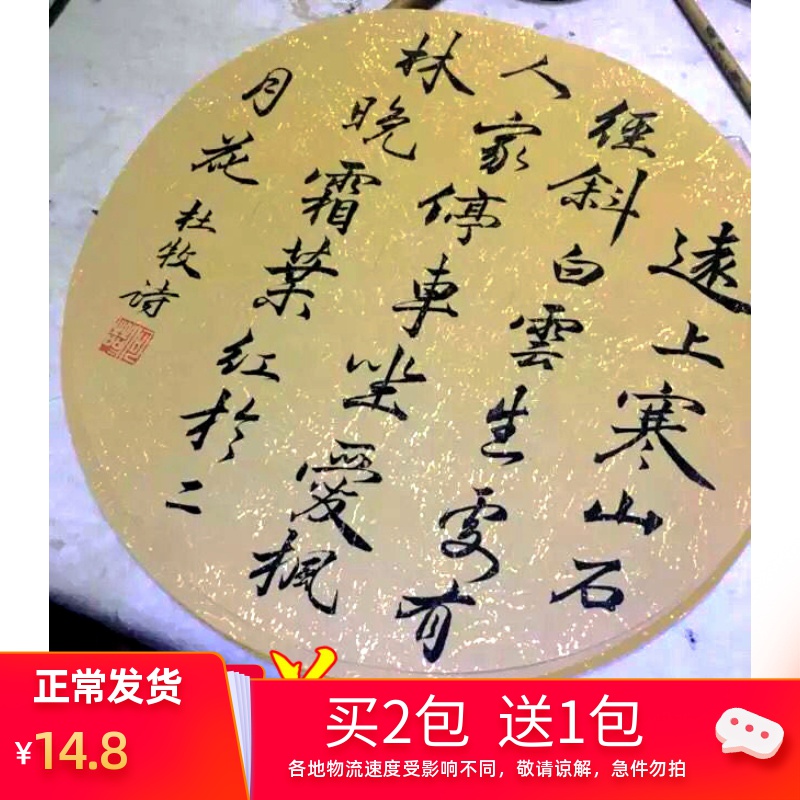 遠上寒山石
徑斜白雲生處有
人家停車坐愛楓
林晚霜葉红於二
月花
杜牧诗
正常发货
¥14.8
买2包 送1包
各地物流速度受影响不同，敬请谅解，急件勿拍